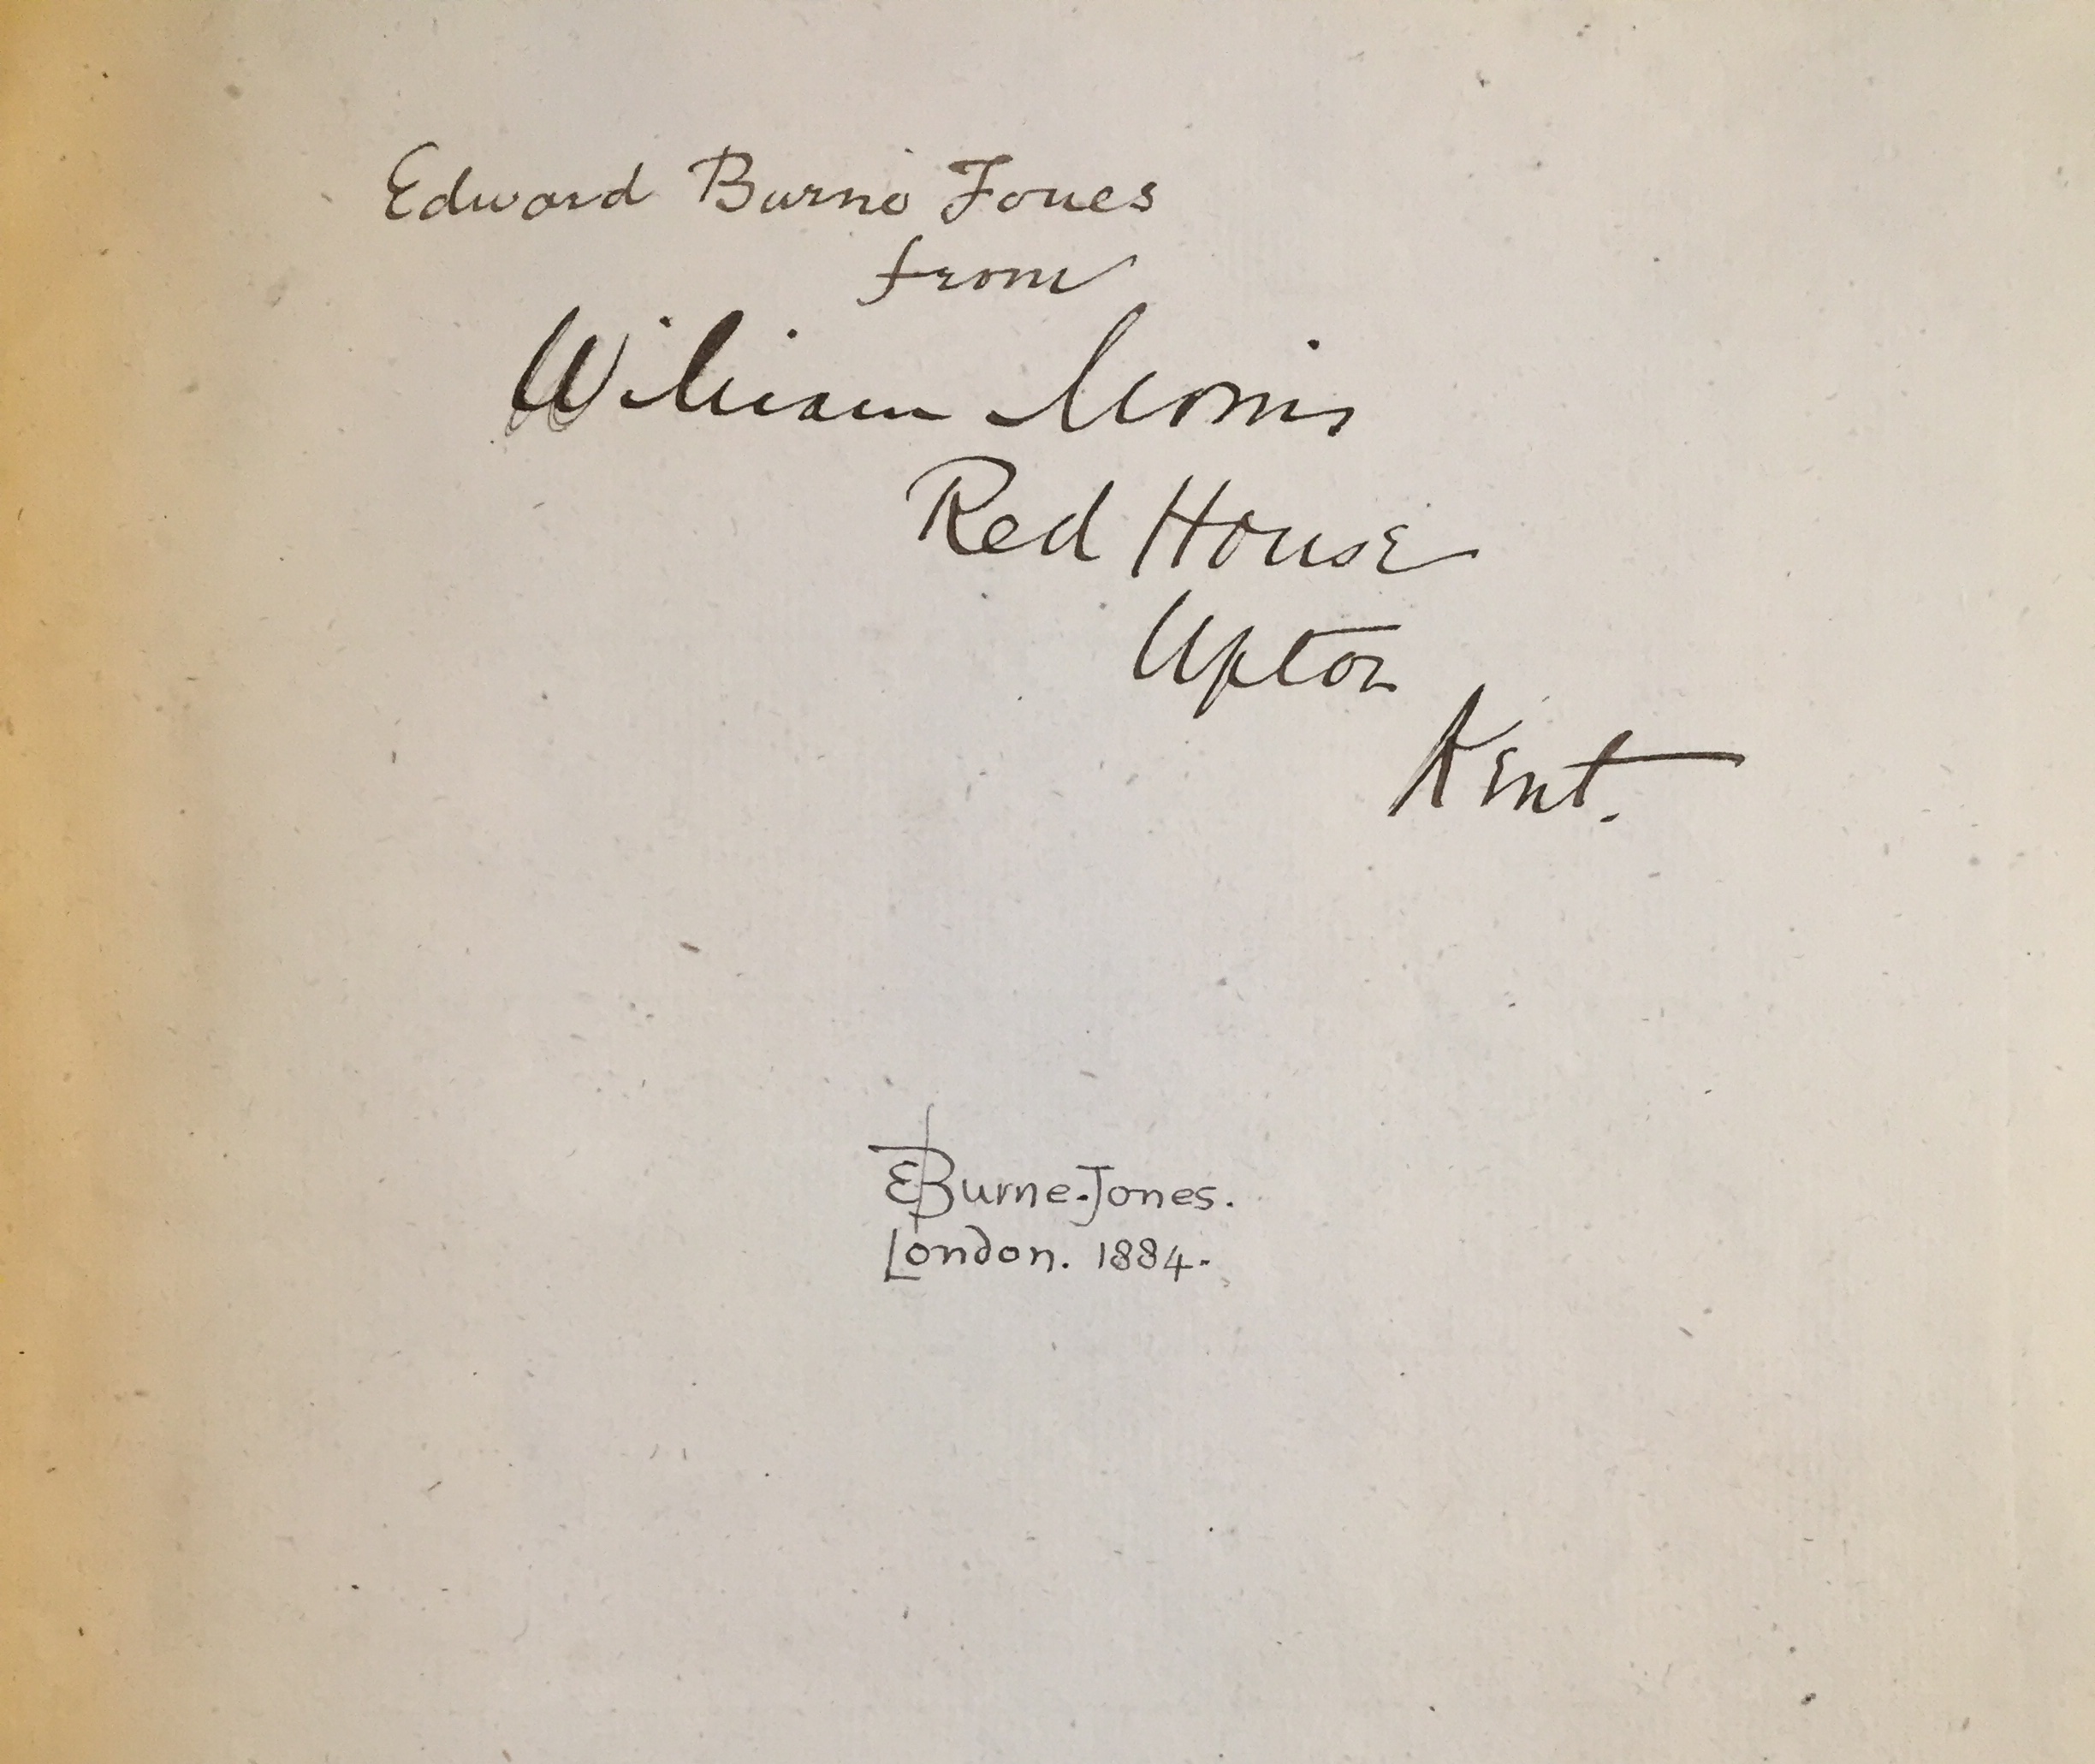 Edward Burne Jones
from
William Morris
Red House
Upton
Kent.
EBurne-Jones.
London. 1884.